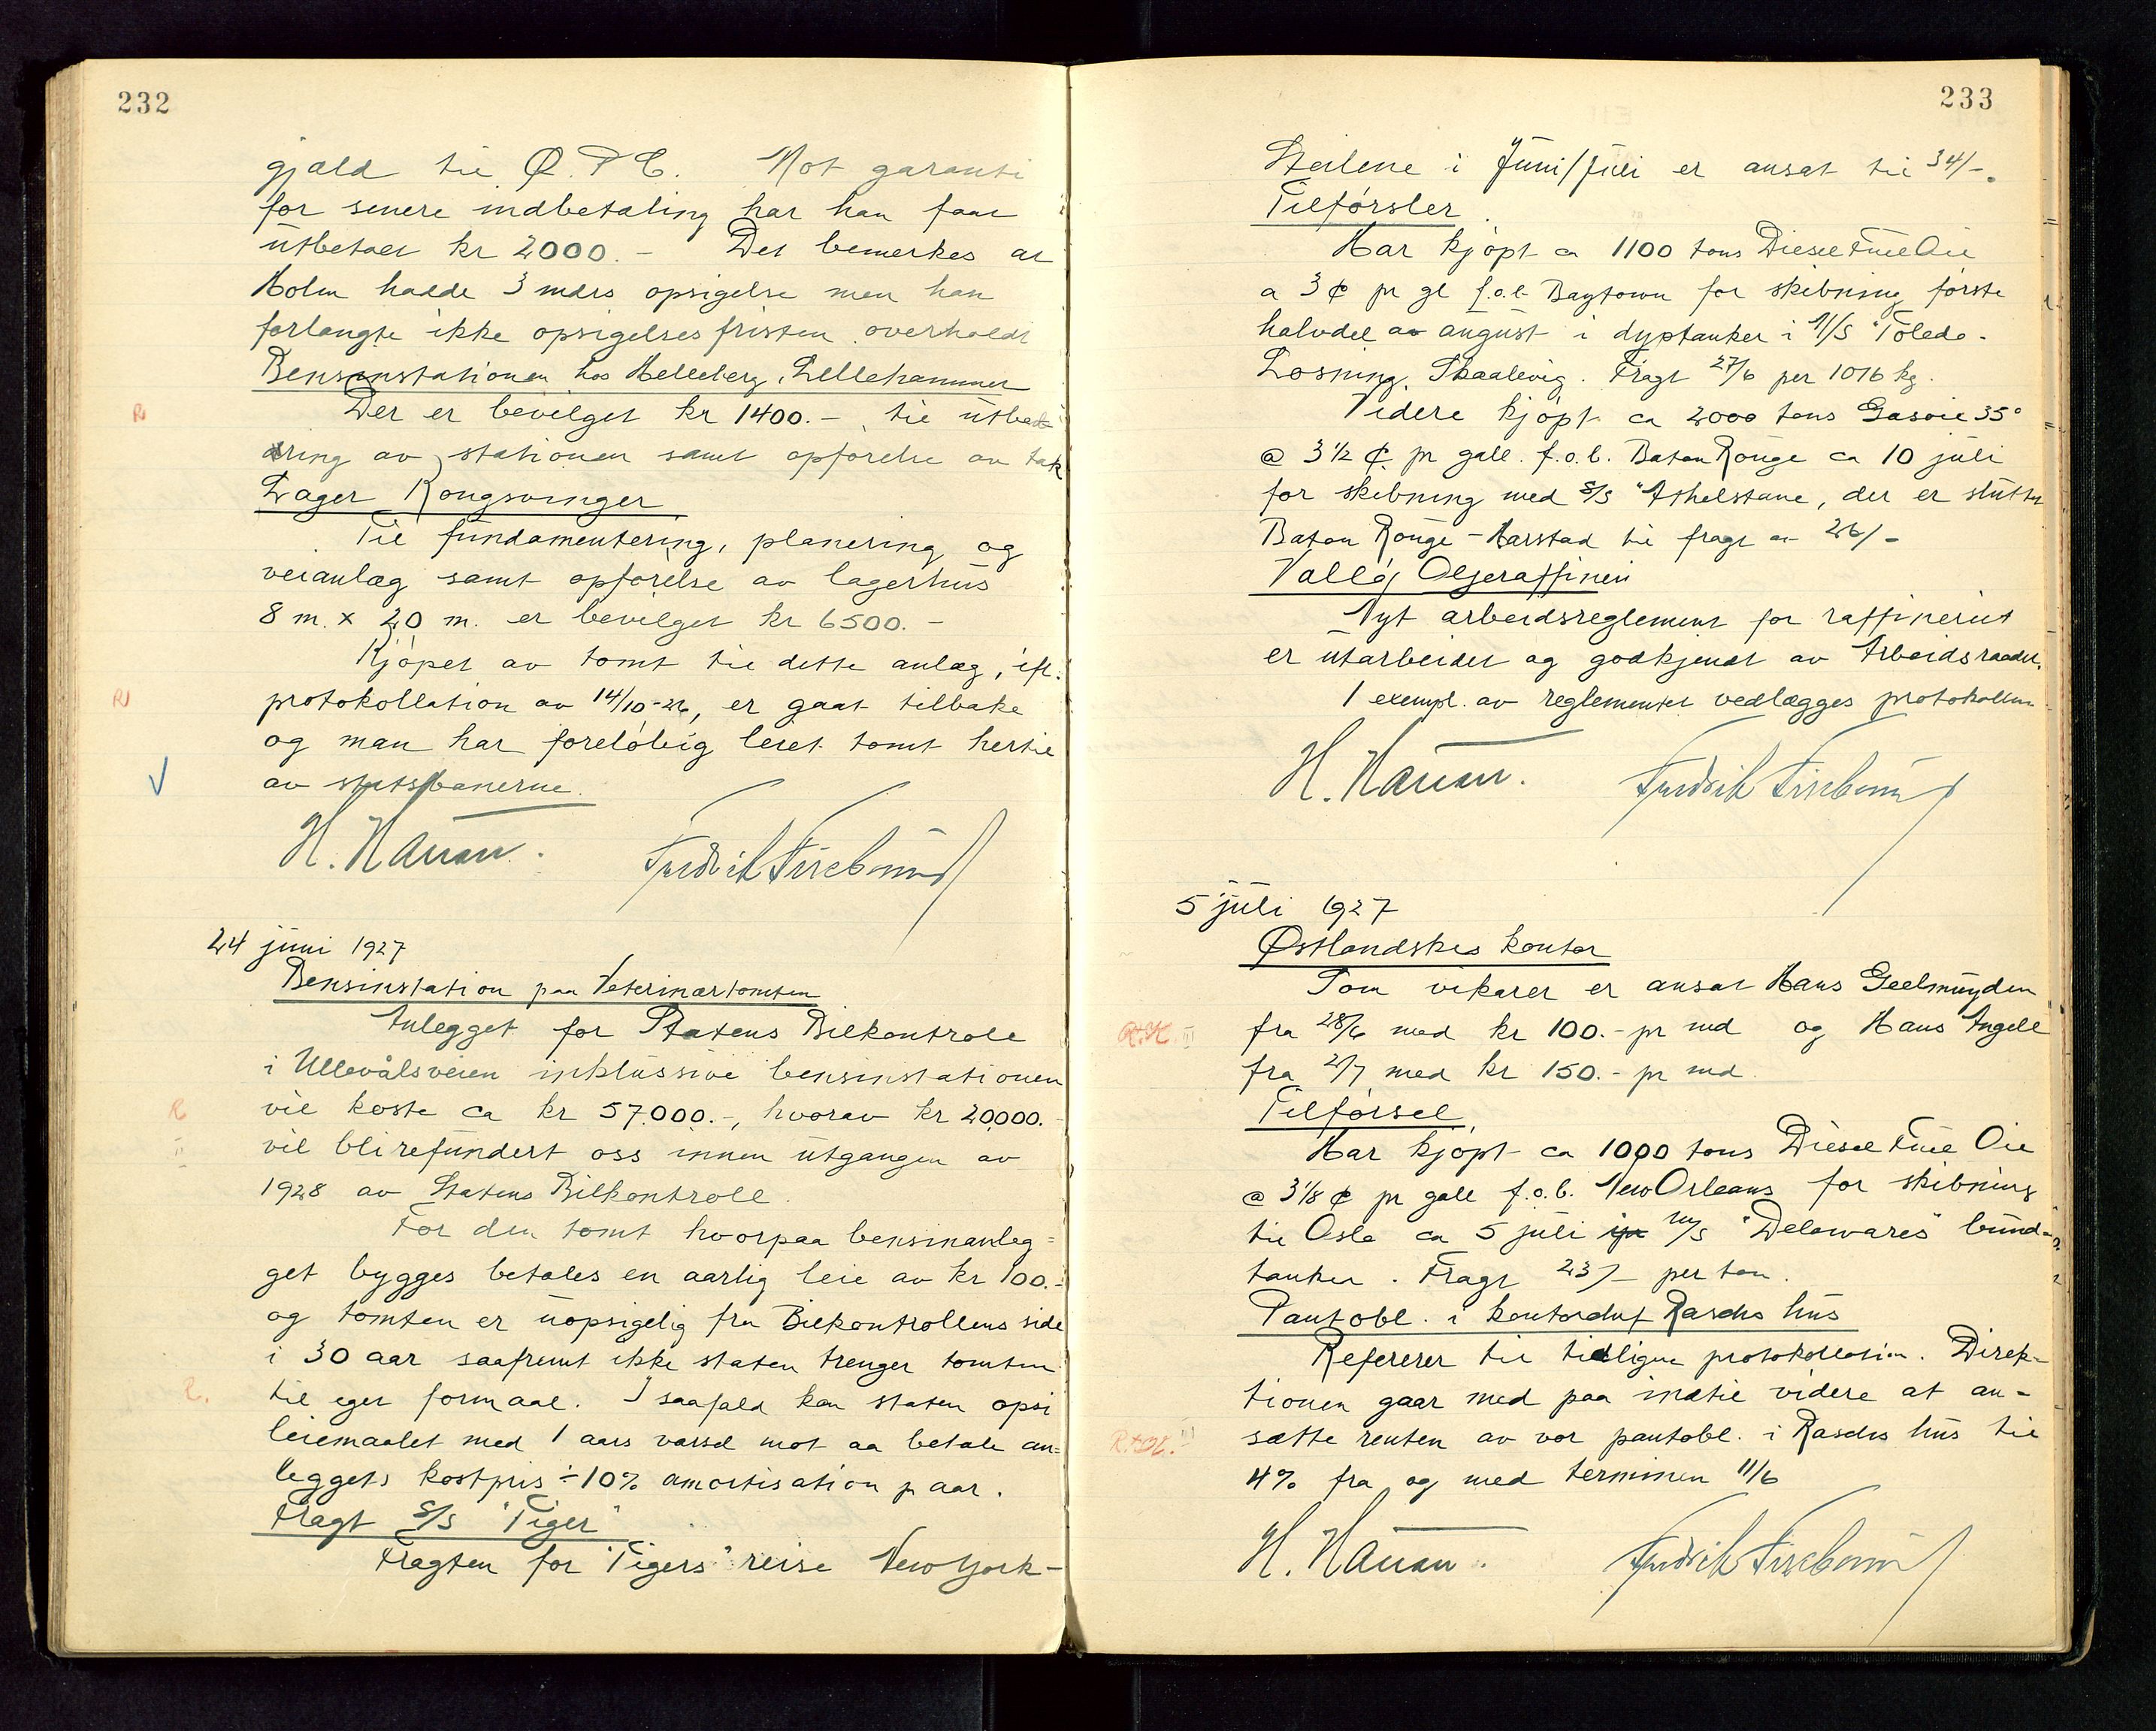 232
gjæld til Ø. P. C. Mot garanti
for senere indbetaling har han faat
utbetalt kr 2000.- Det bemerkes at
Holm hadde 3 mdrs opsigelse men han
forlangte ikke opsigelsesfristen overholdt
Bensinstationen hos Helleberg, Lillehammer
R
Der er bevilget kr 1400.- til utbed
dring av stationen samt opførelse av tak
Lager Kongsvinger
Til fundamentering, planering og
veianlæg samt opførelse av lagerhus
8 m. x 20 m. er bevilget kr 6500.-
Kjøpet av tomt til dette anlæg, ifl.
R
protokollation av 14/10-26, er gaat tilbake
og man har foreløbig leiet tomt hertil
av statsbanerne.
H. Hansen. Fredrik
24 juni 1927
Bensinstation paa Veterinærtomten
Anlegget for Statens Bilkontroll
i Ullevålsveien inklusive bensinstationen
R
vil koste ca kr 57.000.-, hvorav kr 20.000.-
vil bli refundert oss innen utgangen av
1928 av Statens Bilkontroll.
For den tomt hvorpaa bensinanleg=
get bygges betales en aarlig leie av kr 100.-
og tomten er uopsigelig fra Bilkontrollens side
i 30 aar saafremt ikke staten trenger tomten
R.
til eget formaal. I saafald kan staten opsi
leiemaalet med 1 aars varsel mot aa betale an=
leggets kostpris ÷ 10% amortisation p aar.
Fragt S/S "Tiger"
Fragten for "Tigers" reise New York-
233
Steilene i Juni/Juli er ansat til 34/-.
Tilførsler.
Har kjøpt ca 1100 tons Diesel Fuel Oil
a 3 ¢ pr gl f.o.b. Baytown for skibning første
halvdel av august i dyptanker i M/S "Toledo.
Losning, Skaalevig. Fragt 27/6 per 1016 kg.
Videre kjøpt ca 2000 tons Gasoil 35°
@ 3 1/2 ¢ pr gall. f.o.b. Baton Rouge ca 10 juli
for skibning med S/S "Athelstane, der er sluttet
Baton Rouge - Harstad til fragt av 26/-
Valløy Oljeraffineri
Nyt arbeidsreglement for raffineriet
er utarbeidet og godkjendt av Arbeidsraadet.
1 exempl. av reglementet vedlægges protokollen
H. Hansen. Fredrik
5 juli 1927
Østlandskes kontor
Som vikarer er ansat Hans Geelmuyden
fra 28/6 med kr 100.- pr md og Hans Angell
fra 2/7 med kr 150.- pr md.
Tilførsel
Har kjøpt ca 1000 tons Diesel Fuel Oil
@ 3 1/8 ¢ pr gall f.o.b. New Orleans for skibning
til Oslo ca 5 juli M/S "Delawares" bund-
tanker. Fragt 23/- per ton.
Pantobl. i kontorchef Raschs hus
Refererer til tidligere protokollation. Direk-
tionen gaar med paa indtil videre at an-
sætte renten av vor pantobl. i Raschs hus til
4% fra og med terminen 11/6
H. Hansen. Fredrik